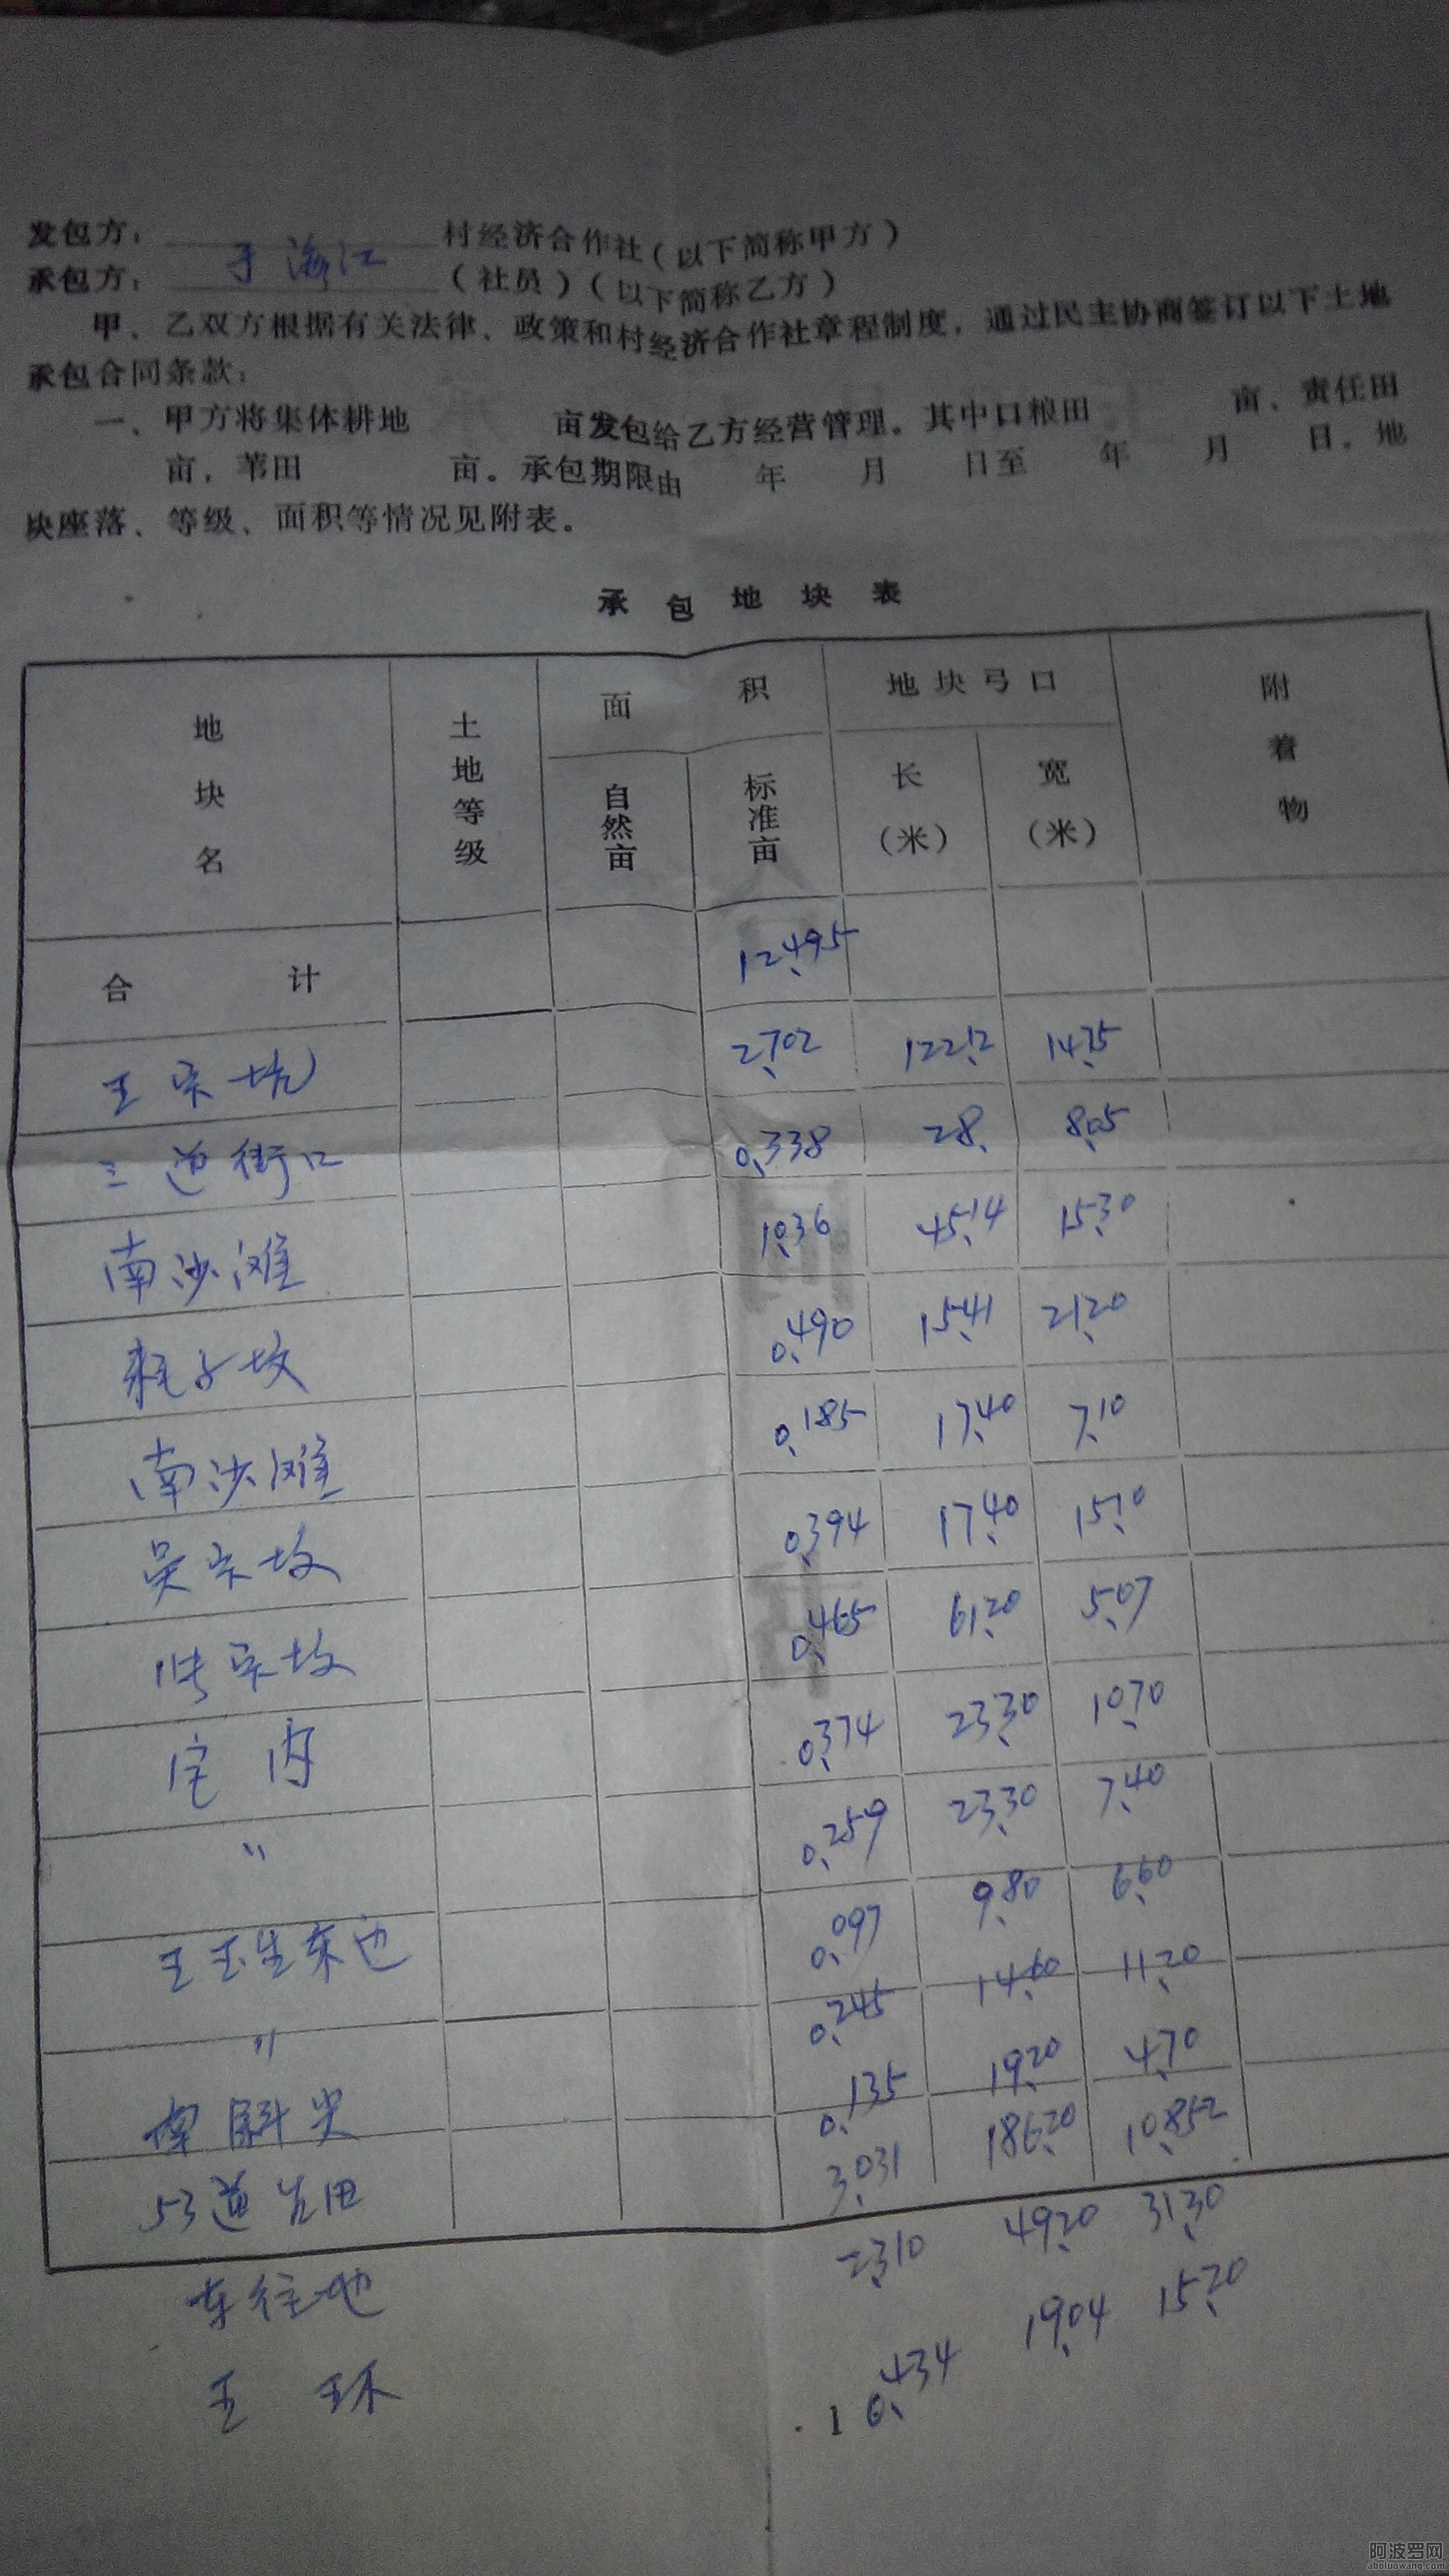 发包方：村经济合作社（以下简称甲方）
承包方：于海江（社员）（以下简称乙方）
甲、乙双方根据有关法律、政策和村经济合作社章程制度，通过民主协商签订以下土地
承包合同条款：
一、甲方将集体耕地 亩发包给乙方经营管理。其中口粮田 亩、责任田
亩，苇田 亩。承包期限由 年 月 日至 年 月 日。地
块座落、等级、面积等情况见附表。
承包地块表
地块名 土地等级 面积 地块弓口 附着物
自然亩 标准亩 长（米） 宽（米）
合计 12.495
王家坑 2.702 122.12 14.75
三道街口 0.338 28. 8.05
南沙滩 1.036 45.14 15.30
坟 0.490 15.41 21.20
南沙滩 0.185 17.40 7.10
吴家坟 0.394 17.40 15.10
家坟 0.465 61.20 5.07
宅内 0.374 23.30 10.70
〃 0.259 23.30 7.40
王玉生东边 0.097 9.80 6.60
〃 0.245 14.60 11.20
0.135 19.20 4.70
53道 田 3.031 186.20 10.852
地 2.310 49.20 31.30
王环 0.434 19.04 15.20
1
阿波罗网
aboluowang.com